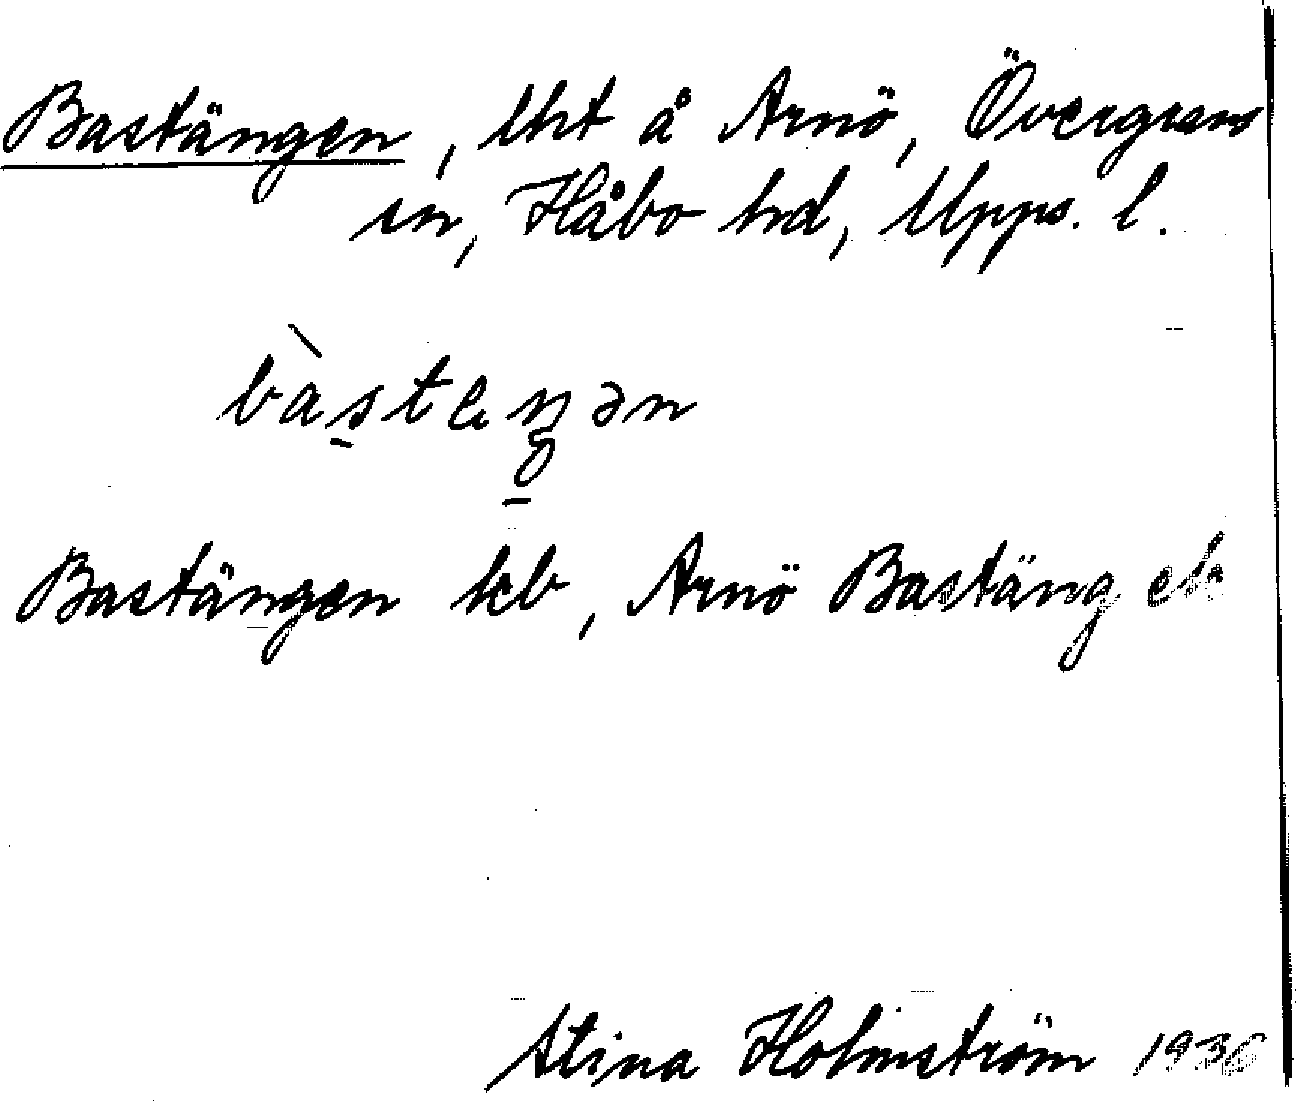 Bastängen, lht å Arnö, Övergrans
sn, Håbo hd, Upps. l.
bàsteŋən
Bastängen kb, Arnö Bastäng ek
Stina Holmström 1936